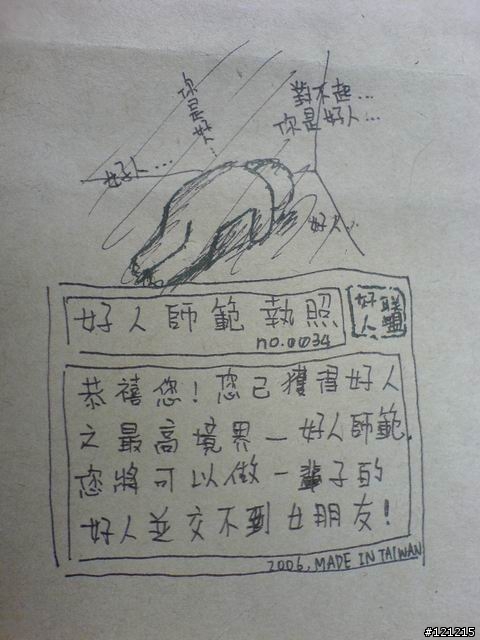 你是好人...
對不起...
你是好人...
好人...
好人...
好人師範執照
no.0034
好人聯盟
恭禧您！您已獲得好人
之最高境界—好人師範.
您將可以做一輩子的
好人並交不到女朋友！
2006, MADE IN TAIWAN
#121215